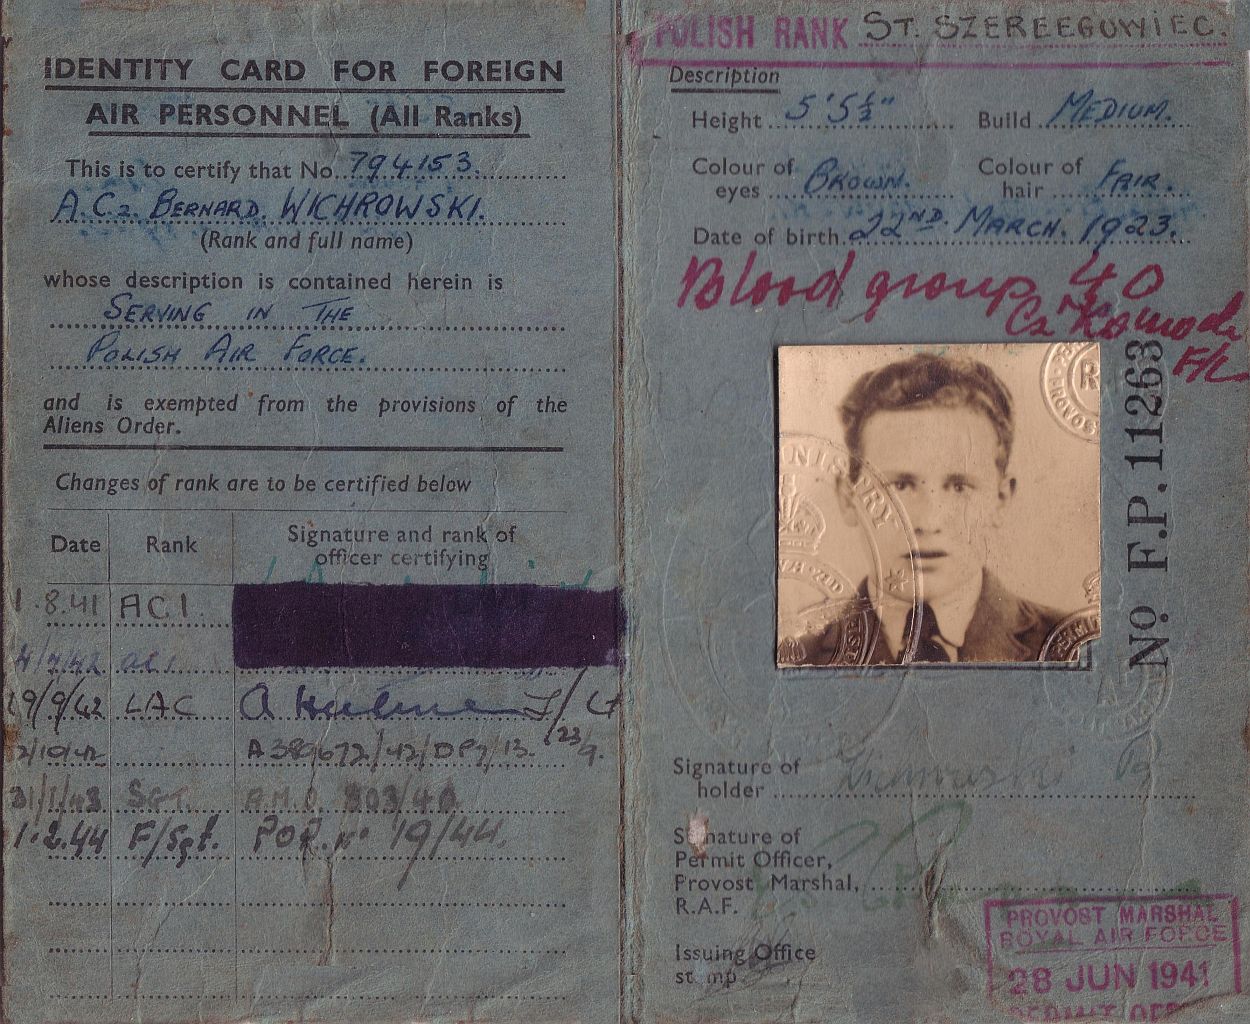 IDENTITY CARD FOR FOREIGN
AIR PERSONNEL (All Ranks)
This is to certify that No. 794153
A.C2. BERNARD. WICHROWSKI.
(Rank and full name)
whose description is contained herein is
SERVING IN THE
POLISH AIR FORCE.
and is exempted from the provisions of the
Aliens Order.
Changes of rank are to be certified below
Date Rank Signature and rank of
officer certifying
1.8.41 AC1.
4/7/42 ac1
19/9/42 LAC
2/10/42 A380672/42/DP7/13. 23/9.
31/1/43 SGT. A.M.O. 803/40
1.2.44 F/Sgt. POR. No 19/44.
POLISH RANK ST. SZEREEGOWIEC.
Description
Height 5'5½" Build MEDIUM.
Colour of eyes BROWN. Colour of hair FAIR.
Date of birth 22ND. MARCH. 1923.
Blood group O
F/L
MINISTRY
No. F.P. 11263
Signature of
holder
Signature of
Permit Officer,
Provost Marshal,
R.A.F.
Issuing Office
stamp
PROVOST MARSHAL
ROYAL AIR FORCE
28 JUN 1941
PERMIT